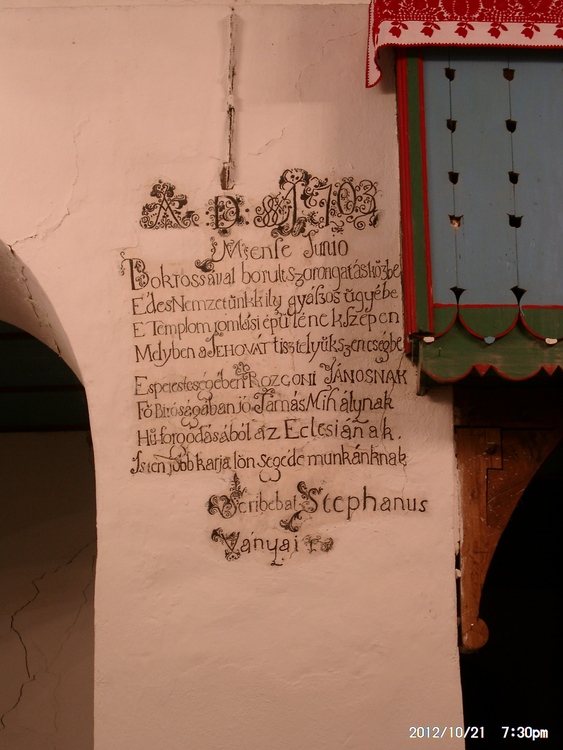 A. D: 1708
Mense Junio
Bokrossával borult szorongatás közbe
Edes Nemzetünk ily gyászos ügyébe
E Templom romlási épülének szépen
Melyben a JEHOVÁT tisztelyük szencségbe
Esperestségében ROZGONI JÁNOSNAK
Fö Biróságában jó Tamás Mihálynak
Hű forgodásából az Eclesiának.
Isten jobb karja lön segéde munkánknak
Scribebat Stephanus
Ványai
2012/10/21 7:30pm